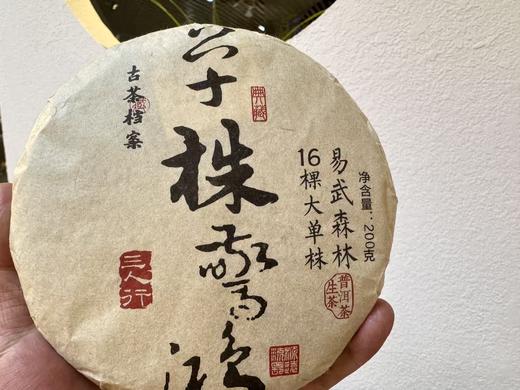 净含量：200克
易武森林
16棵大单株
普洱茶
生茶
典藏
单株驚鸿
古茶档案
三人行